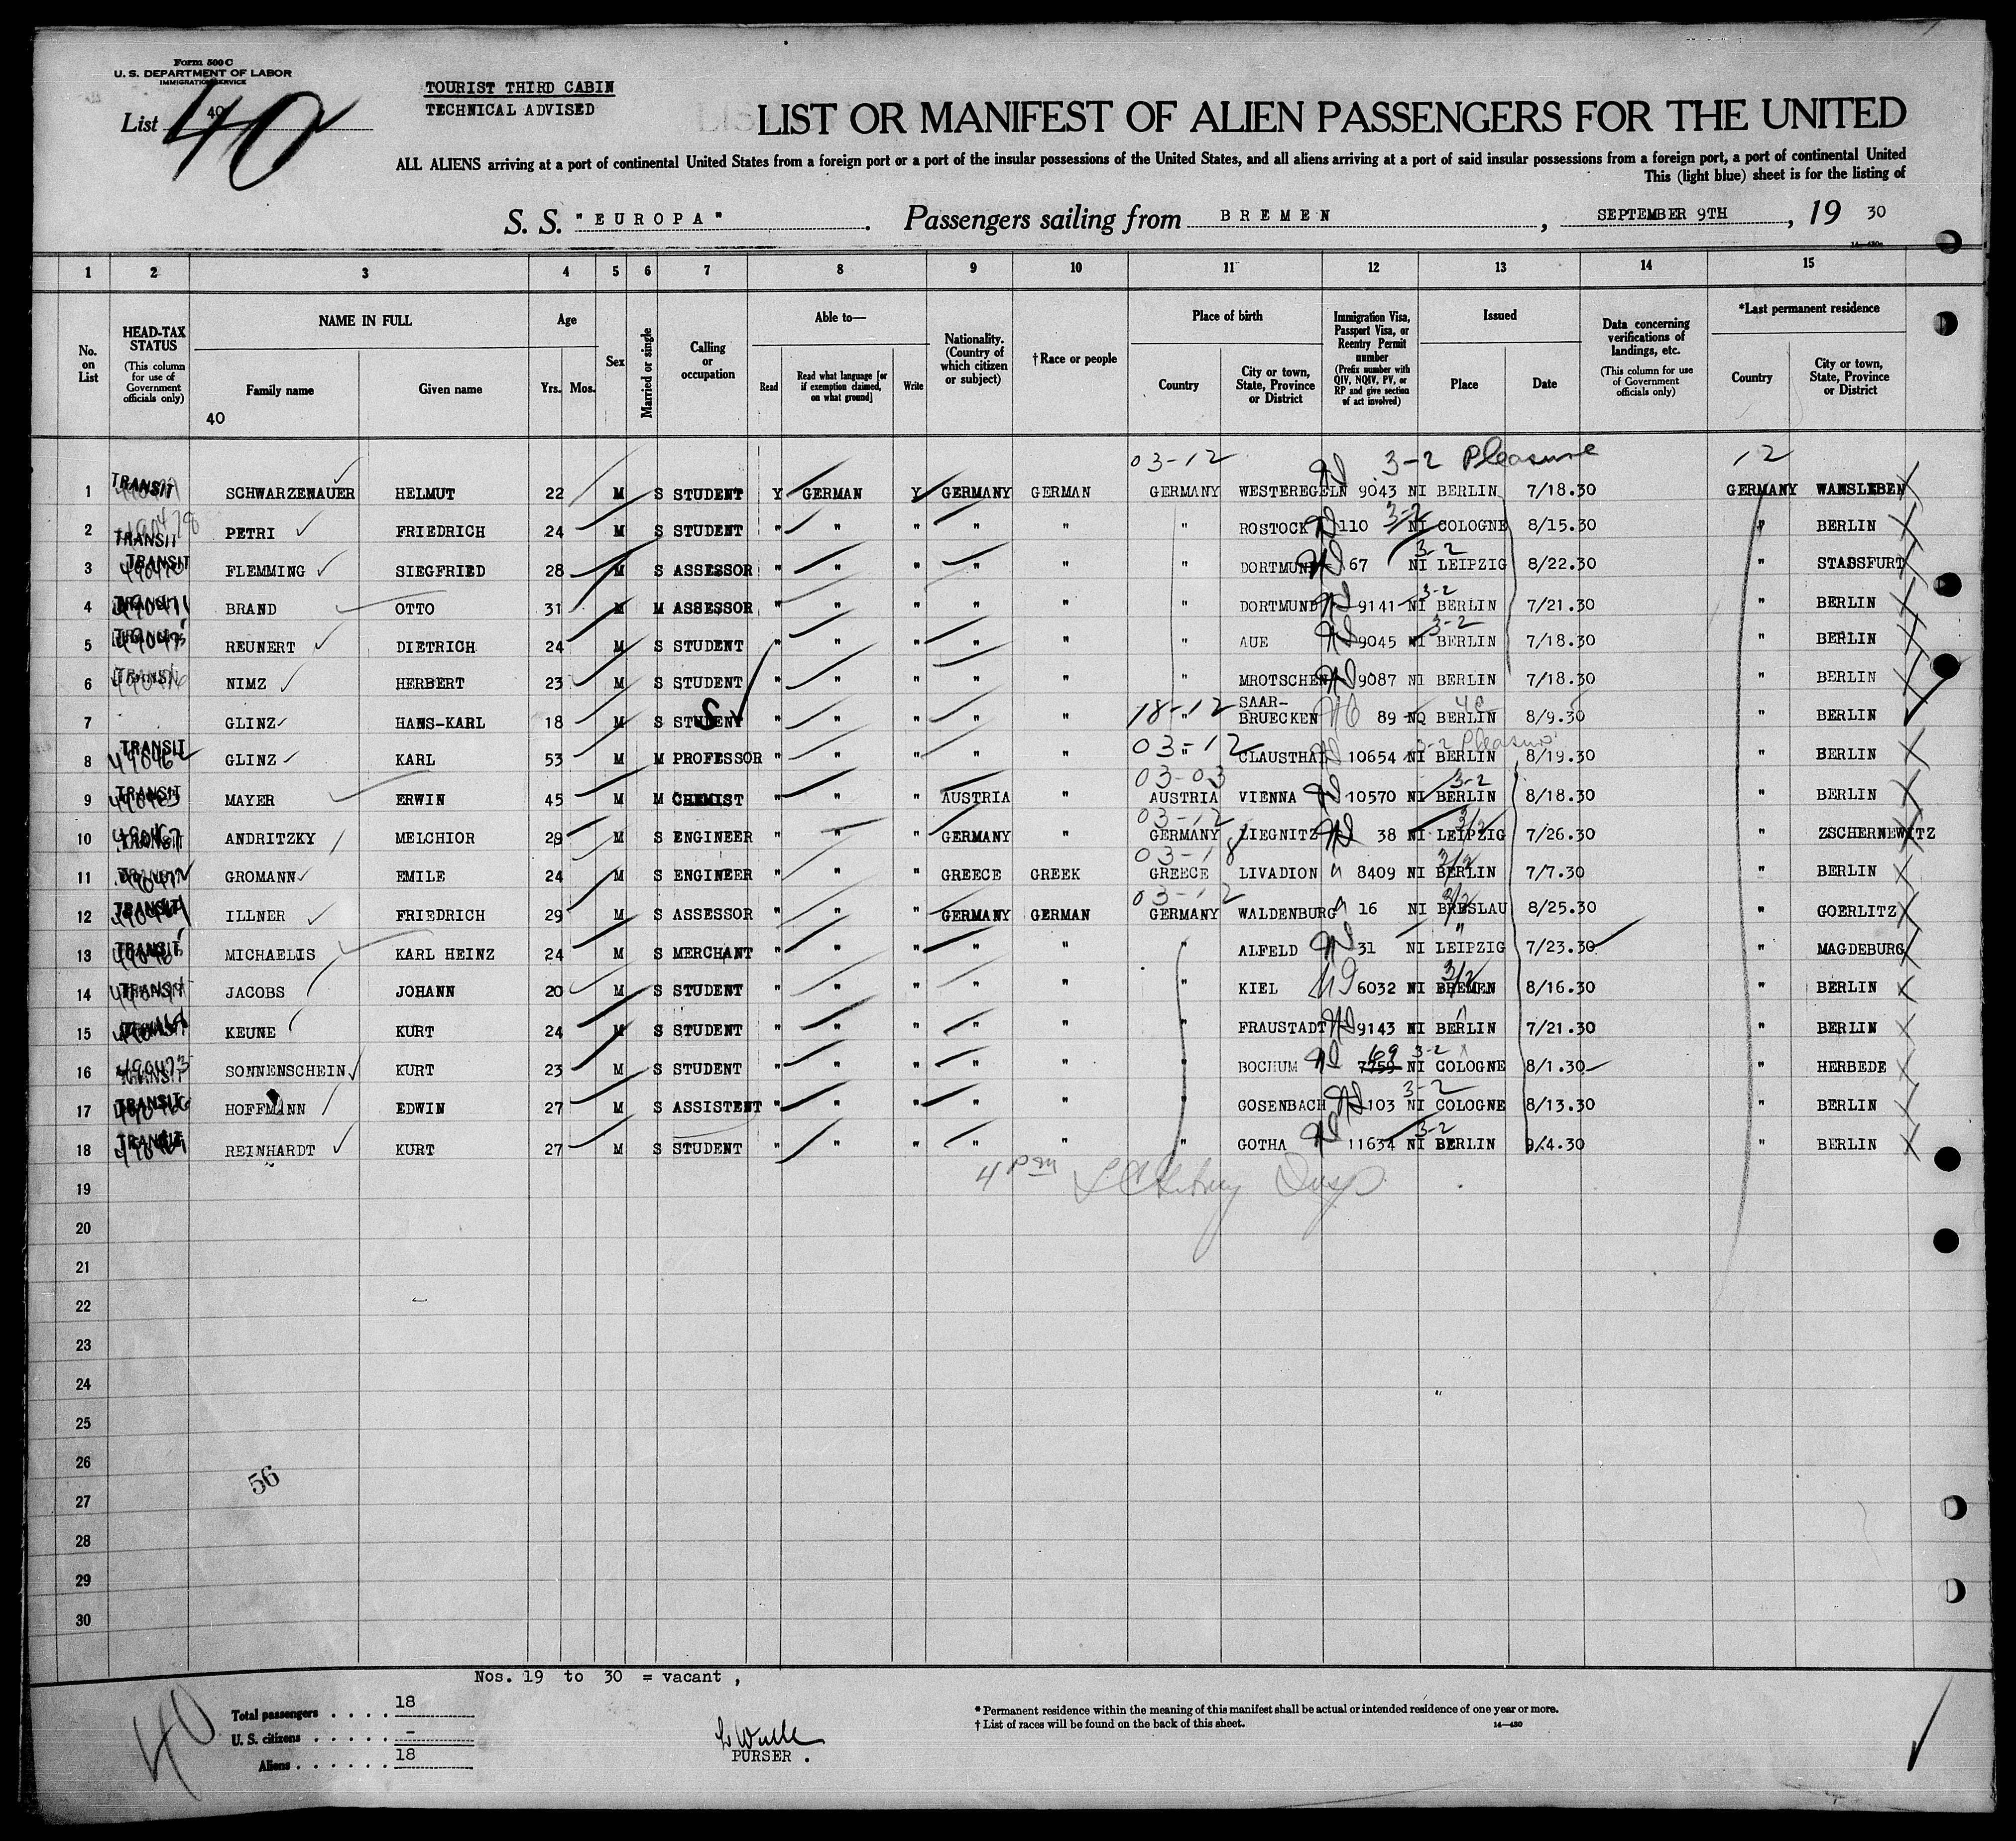 Form 500 C
U. S. DEPARTMENT OF LABOR
IMMIGRATION SERVICE
List 40
40
TOURIST THIRD CABIN
TECHNICAL ADVISED
LIST OR MANIFEST OF ALIEN PASSENGERS FOR THE UNITED
ALL ALIENS arriving at a port of continental United States from a foreign port or a port of the insular possessions of the United States, and all aliens arriving at a port of said insular possessions from a foreign port, a port of continental United
This (light blue) sheet is for the listing of
S. S. "EUROPA". Passengers sailing from BREMEN, SEPTEMBER 9TH, 19 30
1 2 3 4 5 6 7 8 9 10 11 12 13 14 15
No. on List
HEAD-TAX STATUS (This column for use of Government officials only)
NAME IN FULL Family name Given name
40
Age Yrs. Mos.
Sex
Married or single
Calling or occupation
Able to— Read Read what language [or if exemption claimed, on what ground] Write
Nationality. (Country of which citizen or subject)
†Race or people
Place of birth Country City or town, State, Province or District
Immigration Visa, Passport Visa, or Reentry Permit number (Prefix number with QIV, NQIV, PV, or RP and give section of act involved)
Issued Place Date
Data concerning verifications of landings, etc. (This column for use of Government officials only)
*Last permanent residence Country City or town, State, Province or District
03-12 3-2 Pleasure 12
1 TRANSIT SCHWARZENAUER HELMUT 22 M S STUDENT Y GERMAN Y GERMANY GERMAN GERMANY WESTEREGELN 9043 NI BERLIN 7/18.30 GERMANY WANSLEBEN
2 TRANSIT PETRI FRIEDRICH 24 M S STUDENT " " " " " " ROSTOCK 110 3-2 NI COLOGNE 8/15.30 " BERLIN
3 TRANSIT FLEMMING SIEGFRIED 28 M S ASSESSOR " " " " " " DORTMUND 67 3-2 NI LEIPZIG 8/22.30 " STASSFURT
4 TRANSIT BRAND OTTO 31 M M ASSESSOR " " " " " " DORTMUND 9141 3-2 NI BERLIN 7/21.30 " BERLIN
5 TRANSIT REUNERT DIETRICH 24 M S STUDENT " " " " " " AUE 9045 3-2 NI BERLIN 7/18.30 " BERLIN
6 TRANSIT NIMZ HERBERT 23 M S STUDENT " " " " " " MROTSCHEN 9087 NI BERLIN 7/18.30 " BERLIN
7 GLINZ HANS-KARL 18 M S STUDENT S " " " " " 18-12 " SAAR-BRUECKEN 89 NQ BERLIN 8/9.30 " BERLIN
8 TRANSIT GLINZ KARL 53 M M PROFESSOR " " " " " 03-12 " CLAUSTHAL 10654 3-2 Pleasure NI BERLIN 8/19.30 " BERLIN
9 TRANSIT MAYER ERWIN 45 M M CHEMIST " " " AUSTRIA " 03-03 AUSTRIA VIENNA 10570 3-2 NI BERLIN 8/18.30 " BERLIN
10 TRANSIT ANDRITZKY MELCHIOR 29 M S ENGINEER " " " GERMANY " 03-12 GERMANY LIEGNITZ 38 3/2 NI LEIPZIG 7/26.30 " ZSCHERNEWITZ
11 TRANSIT GROMANN EMILE 24 M S ENGINEER " " " GREECE GREEK 03-18 GREECE LIVADION 8409 3/2 NI BERLIN 7/7.30 " BERLIN
12 TRANSIT ILLNER FRIEDRICH 29 M S ASSESSOR " " " GERMANY GERMAN 03-12 GERMANY WALDENBURG 16 3/2 NI BRESLAU 8/25.30 " GOERLITZ
13 TRANSIT MICHAELIS KARL HEINZ 24 M S MERCHANT " " " " " " ALFELD 31 " NI LEIPZIG 7/23.30 " MAGDEBURG
14 TRANSIT JACOBS JOHANN 20 M S STUDENT " " " " " " KIEL 6032 3/2 NI BREMEN 8/16.30 " BERLIN
15 KEUNE KURT 24 M S STUDENT " " " " " " FRAUSTADT 9143 NI BERLIN 7/21.30 " BERLIN
16 TRANSIT SONNENSCHEIN KURT 23 M S STUDENT " " " " " " BOCHUM 69 7759 3-2 NI COLOGNE 8/1.30 " HERBEDE
17 TRANSIT HOFFMANN EDWIN 27 M S ASSISTENT " " " " " " GOSENBACH 103 3-2 NI COLOGNE 8/13.30 " BERLIN
18 TRANSIT REINHARDT KURT 27 M S STUDENT " " " " " " GOTHA 11634 3-2 NI BERLIN 9/4.30 " BERLIN
4 PM Insp
19
20
21
22
23
24
25
26
56
27
28
29
30
Nos. 19 to 30 = vacant,
40
Total passengers . . . . 18
U. S. citizens . . . . . –
Aliens . . . . . . 18
PURSER.
* Permanent residence within the meaning of this manifest shall be actual or intended residence of one year or more.
† List of races will be found on the back of this sheet.
14—430